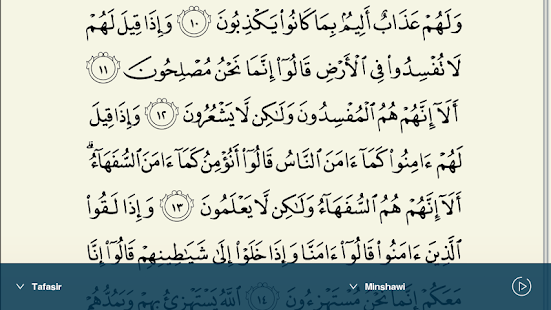 وَلَهُمْ عَذَابٌ أَلِيمُۢ بِمَا كَانُوا۟ يَكْذِبُونَ ١٠ وَإِذَا قِيلَ لَهُمْ
لَا تُفْسِدُوا۟ فِى ٱلْأَرْضِ قَالُوٓا۟ إِنَّمَا نَحْنُ مُصْلِحُونَ ١١
أَلَآ إِنَّهُمْ هُمُ ٱلْمُفْسِدُونَ وَلَٰكِن لَّا يَشْعُرُونَ ١٢ وَإِذَا قِيلَ
لَهُمْ ءَامِنُوا۟ كَمَآ ءَامَنَ ٱلنَّاسُ قَالُوٓا۟ أَنُؤْمِنُ كَمَآ ءَامَنَ ٱلسُّفَهَآءُ ۗ
أَلَآ إِنَّهُمْ هُمُ ٱلسُّفَهَآءُ وَلَٰكِن لَّا يَعْلَمُونَ ١٣ وَإِذَا لَقُوا۟
ٱلَّذِينَ ءَامَنُوا۟ قَالُوٓا۟ ءَامَنَّا وَإِذَا خَلَوْا۟ إِلَىٰ شَيَٰطِينِهِمْ قَالُوٓا۟ إِنَّا
مَعَكُمْ إِنَّمَا نَحْنُ مُسْتَهْزِءُونَ ١٤ ٱللَّهُ يَسْتَهْزِئُ بِهِمْ وَيَمُدُّهُمْ
Tafasir Minshawi